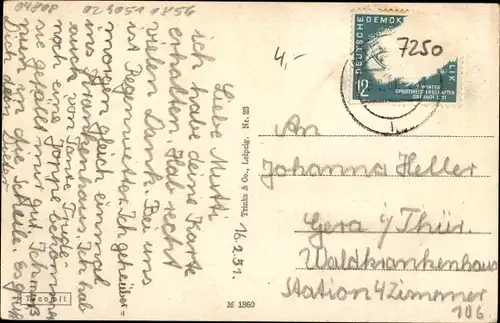 04808
023051 0856
4,-
7250
DEUTSCHE DEMOK
LIK
12
WINTER
SPORTMEISTERSCHAFTEN
OBERHOF 1951
16.2.51.
Liebe Mutti
ich habe deine Karte
erhalten. Hab recht
vielen Dank. Bei uns
ist Regenwetter. Ich gehe über-
morgen gleich einmal
ins Krankenhaus. Ich hab
auch von Tante Trude
noch eine Joppe bekommen
sie gefällt mir gut. Ich muß
nun in die Schule. Es grüßt
Dich dein Dieter
Trinks & Co., Leipzig. Nr. 23
M 1360
An
Johanna Heller
Gera i/Thür.
Waldkrankenhaus
Station 4 Zimmer
106.